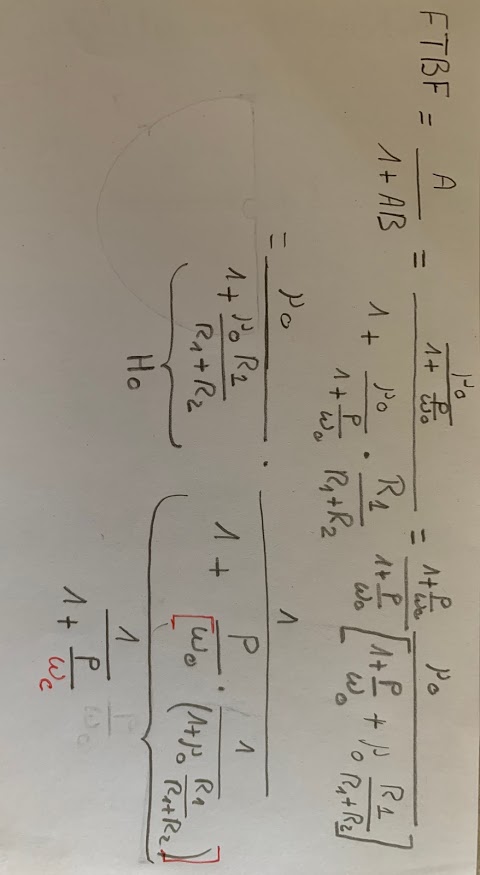 FTBF = \frac{A}{1+AB} = \frac{\frac{μ_0}{1+\frac{p}{ω_0}}}{1+\frac{μ_0}{1+\frac{p}{ω_0}} \cdot \frac{R_1}{R_1+R_2}} = \frac{μ_0}{\frac{1+\frac{p}{ω_0}}{1+\frac{p}{ω_0}}\left[1+\frac{p}{ω_0}+μ_0\frac{R_1}{R_1+R_2}\right]}
= \frac{μ_0}{1+\frac{μ_0 R_1}{R_1+R_2}} \cdot \frac{1}{1+\frac{p}{\left[ω_0\right.} \cdot \frac{1}{\left.\left(1+μ_0\frac{R_1}{R_1+R_2}\right)\right]}}
H_0
\frac{1}{1+\frac{p}{ω_c}}